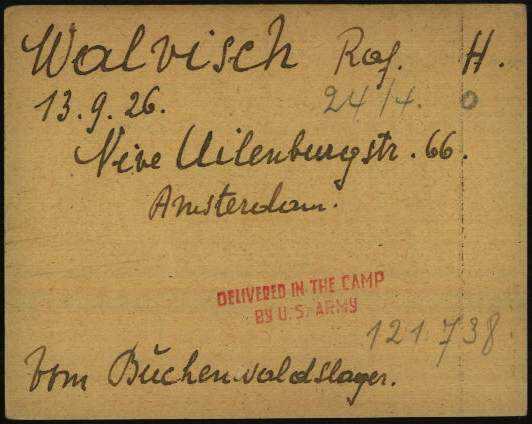 Walvisch Raf. H.
13.9.26. 24/4.
Nive Uilenburgstr. 66.
Amsterdam.
DELIVERED IN THE CAMP
BY U.S. ARMY
121.738
vom Buchenwaldslager.